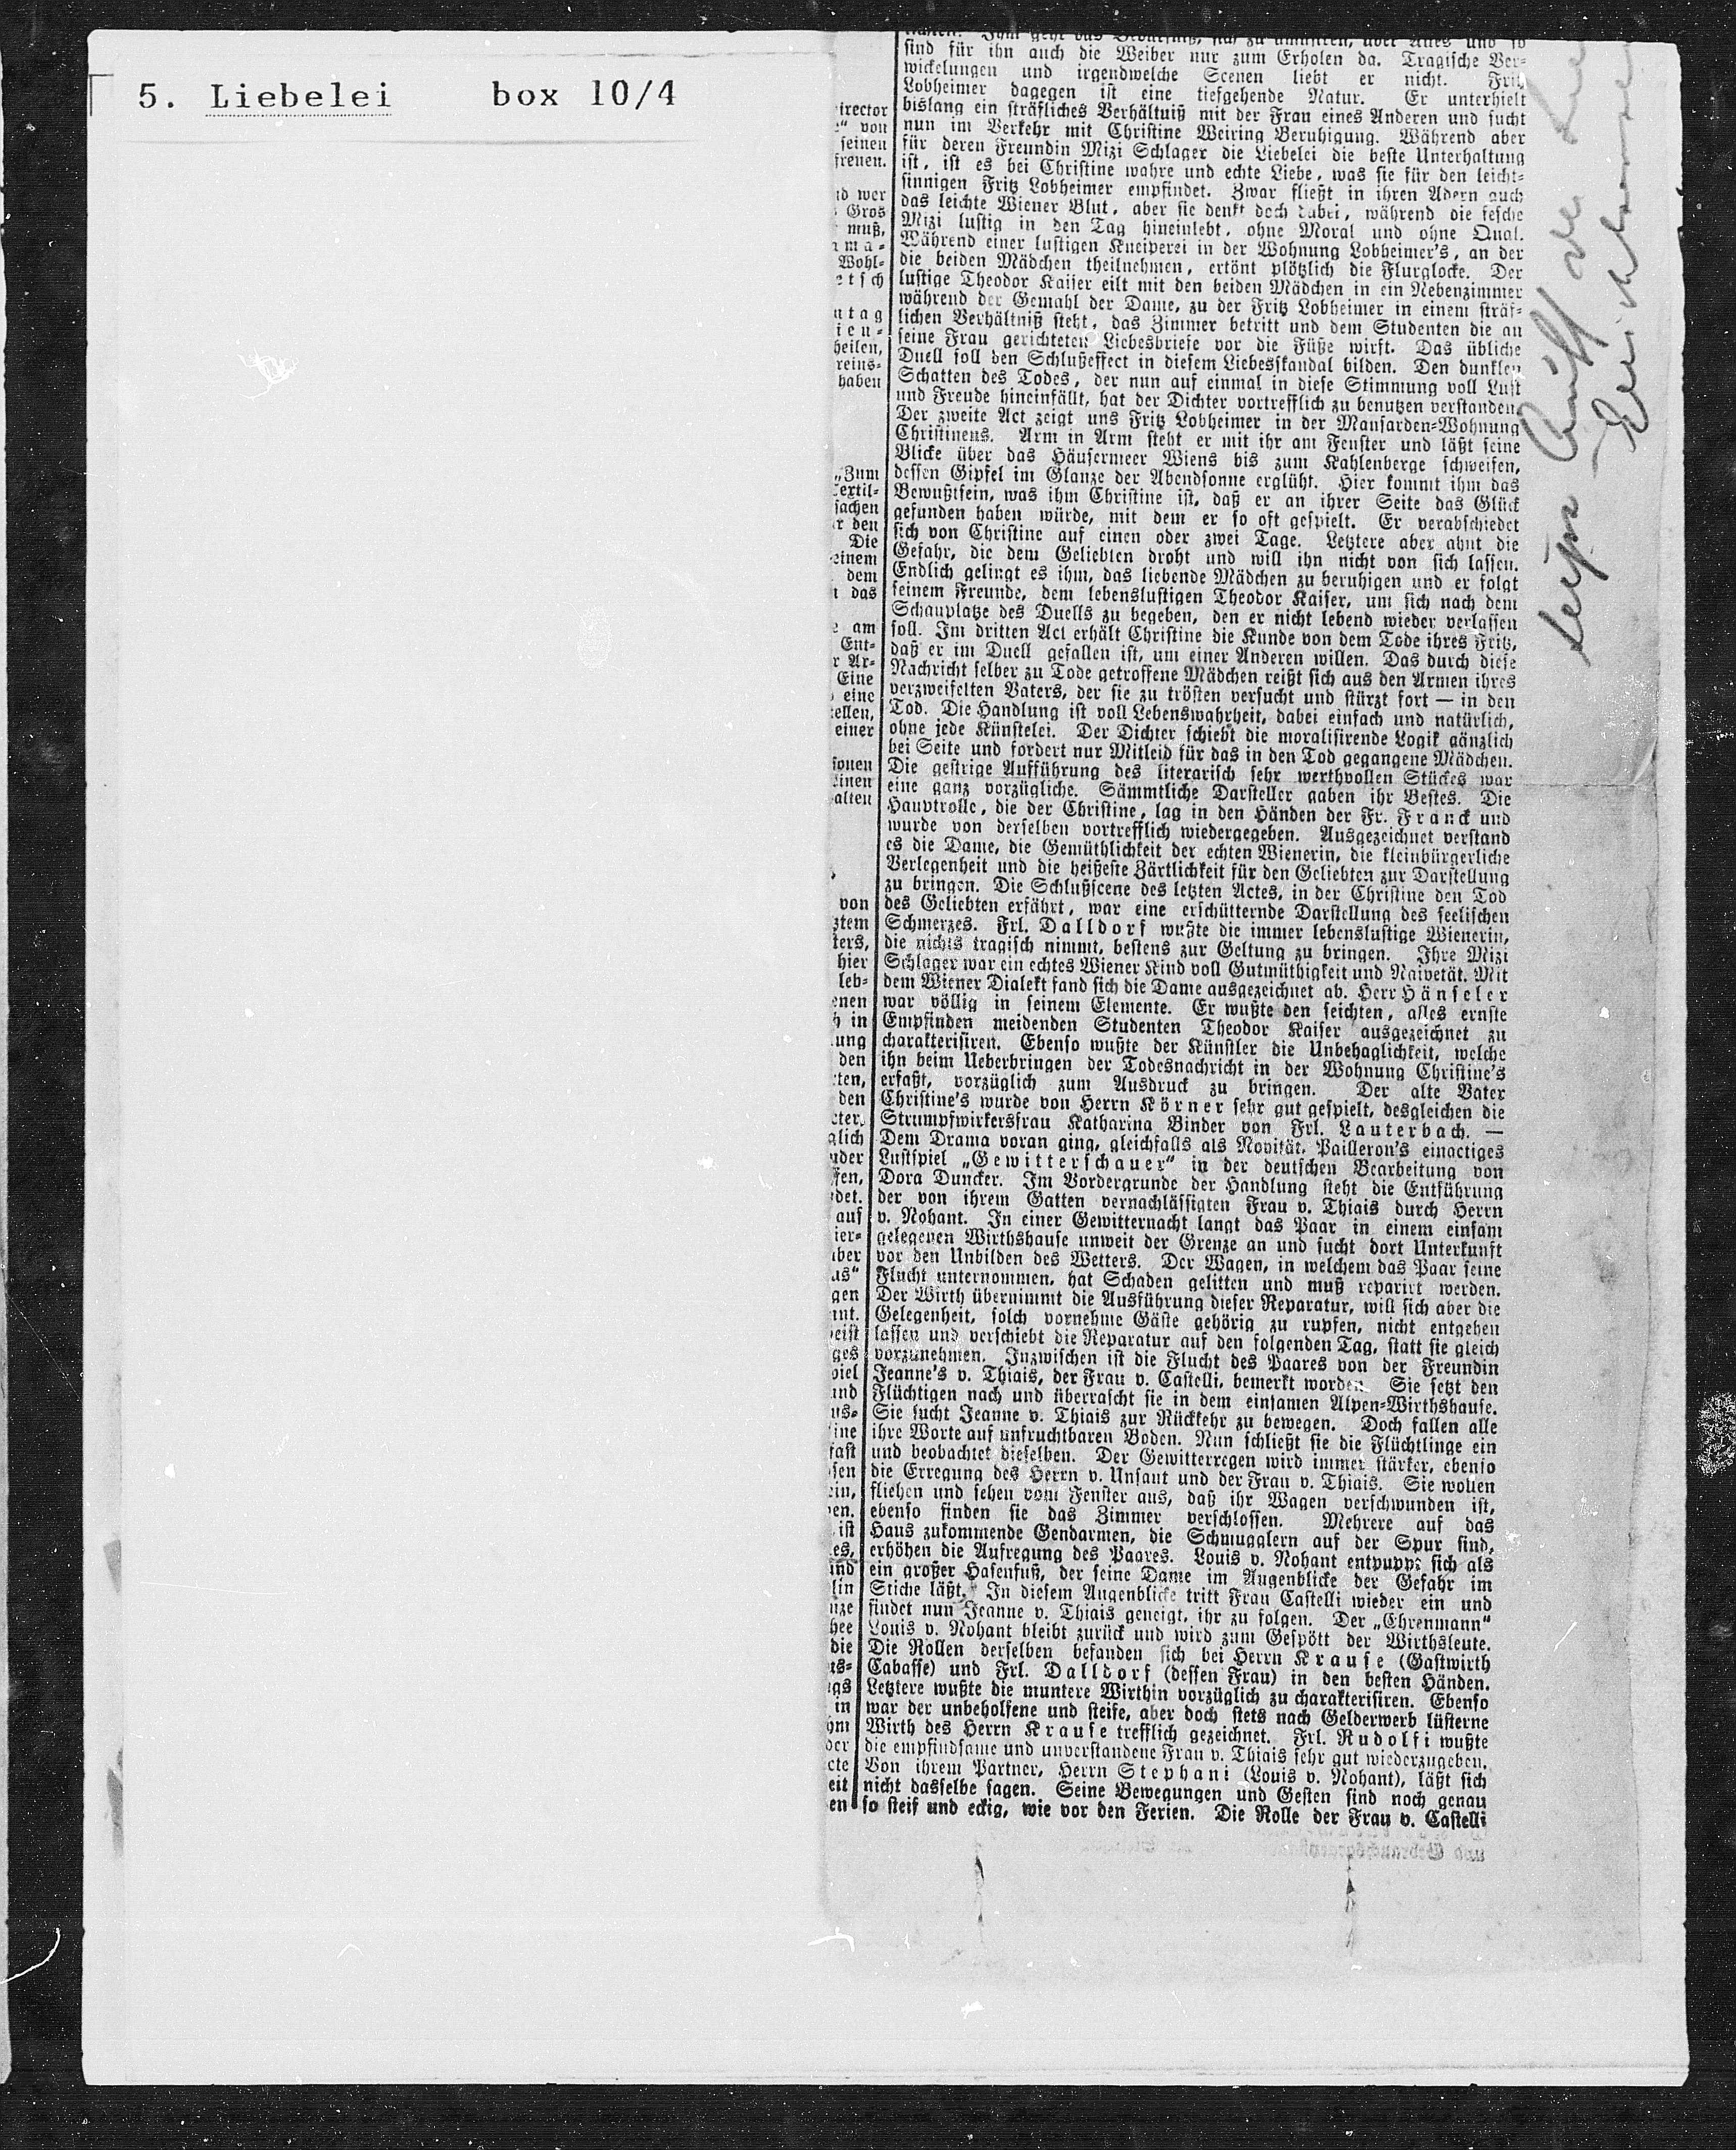 5. Liebelei box 10/4
sind für ihn auch die Weiber nur zum Erholen da. Tragische Ver-
wickelungen und irgendwelche Scenen liebt er nicht. Fritz
Lobheimer dagegen ist eine tiefgehende Natur. Er unterhielt
bislang ein sträfliches Verhältniß mit der Frau eines Anderen und sucht
nun im Verkehr mit Christine Weiring Beruhigung. Während aber
für deren Freundin Mizi Schlager die Liebelei die beste Unterhaltung
ist, ist es bei Christine wahre und echte Liebe, was sie für den leicht-
sinnigen Fritz Lobheimer empfindet. Zwar fließt in ihren Adern auch
das leichte Wiener Blut, aber sie denkt doch dabei, während die fesche
Mizi lustig in den Tag hineinlebt, ohne Moral und ohne Qual.
Während einer lustigen Kneiperei in der Wohnung Lobheimer's, an der
die beiden Mädchen theilnehmen, ertönt plötzlich die Flurglocke. Der
lustige Theodor Kaiser eilt mit den beiden Mädchen in ein Nebenzimmer
während der Gemahl der Dame, zu der Fritz Lobheimer in einem sträf-
lichen Verhältniß steht, das Zimmer betritt und dem Studenten die an
seine Frau gerichteten Liebesbriefe vor die Füße wirft. Das übliche
Duell soll den Schlußeffect in diesem Liebesskandal bilden. Den dunklen
Schatten des Todes, der nun auf einmal in diese Stimmung voll Lust
und Freude hineinfällt, hat der Dichter vortrefflich zu benutzen verstanden.
Der zweite Act zeigt uns Fritz Lobheimer in der Mansarden-Wohnung
Christinens. Arm in Arm steht er mit ihr am Fenster und läßt seine
Blicke über das Häusermeer Wiens bis zum Kahlenberge schweifen,
dessen Gipfel im Glanze der Abendsonne erglüht. Hier kommt ihm das
Bewußtsein, was ihm Christine ist, daß er an ihrer Seite das Glück
gefunden haben würde, mit dem er so oft gespielt. Er verabschiedet
sich von Christine auf einen oder zwei Tage. Letztere aber ahnt die
Gefahr, die dem Geliebten droht und will ihn nicht von sich lassen.
Endlich gelingt es ihm, das liebende Mädchen zu beruhigen und er folgt
seinem Freunde, dem lebenslustigen Theodor Kaiser, um sich nach dem
Schauplatze des Duells zu begeben, den er nicht lebend wieder verlassen
soll. Im dritten Act erhält Christine die Kunde von dem Tode ihres Fritz,
daß er im Duell gefallen ist, um einer Anderen willen. Das durch diese
Nachricht selber zu Tode getroffene Mädchen reißt sich aus den Armen ihres
verzweifelten Vaters, der sie zu trösten versucht und stürzt fort — in den
Tod. Die Handlung ist voll Lebenswahrheit, dabei einfach und natürlich,
ohne jede Künstelei. Der Dichter schiebt die moralisirende Logik gänzlich
bei Seite und fordert nur Mitleid für das in den Tod gegangene Mädchen.
Die gestrige Aufführung des literarisch sehr werthvollen Stückes war
eine ganz vorzügliche. Sämmtliche Darsteller gaben ihr Bestes. Die
Hauptrolle, die der Christine, lag in den Händen der Fr. Franck und
wurde von derselben vortrefflich wiedergegeben. Ausgezeichnet verstand
es die Dame, die Gemüthlichkeit der echten Wienerin, die kleinbürgerliche
Verlegenheit und die heißeste Zärtlichkeit für den Geliebten zur Darstellung
zu bringen. Die Schlußscene des letzten Actes, in der Christine den Tod
des Geliebten erfährt, war eine erschütternde Darstellung des seelischen
Schmerzes. Frl. Dalldorf wußte die immer lebenslustige Wienerin,
die nichts tragisch nimmt, bestens zur Geltung zu bringen. Ihre Mizi
Schlager war ein echtes Wiener Kind voll Gutmüthigkeit und Naivetät. Mit
dem Wiener Dialekt fand sich die Dame ausgezeichnet ab. Herr Hänseler
war völlig in seinem Elemente. Er wußte den seichten, alles ernste
Empfinden meidenden Studenten Theodor Kaiser ausgezeichnet zu
charakterisiren. Ebenso wußte der Künstler die Unbehaglichkeit, welche
ihn beim Ueberbringen der Todesnachricht in der Wohnung Christine's
erfaßt, vorzüglich zum Ausdruck zu bringen. Der alte Vater
Christine's wurde von Herrn Körner sehr gut gespielt, desgleichen die
Strumpfwirkersfrau Katharina Binder von Frl. Lauterbach. —
Dem Drama voran ging, gleichfalls als Novität, Pailleron's einactiges
Lustspiel „Gewitterschauer“ in der deutschen Bearbeitung von
Dora Duncker. Im Vordergrunde der Handlung steht die Entführung
der von ihrem Gatten vernachlässigten Frau v. Thiais durch Herrn
v. Nohant. In einer Gewitternacht langt das Paar in einem einsam
gelegenen Wirthshause unweit der Grenze an und sucht dort Unterkunft
vor den Unbilden des Wetters. Der Wagen, in welchem das Paar seine
Flucht unternommen, hat Schaden gelitten und muß reparirt werden.
Der Wirth übernimmt die Ausführung dieser Reparatur, will sich aber die
Gelegenheit, solch vornehme Gäste gehörig zu rupfen, nicht entgehen
lassen und verschiebt die Reparatur auf den folgenden Tag, statt sie gleich
vorzunehmen. Inzwischen ist die Flucht des Paares von der Freundin
Jeanne's v. Thiais, der Frau v. Castelli, bemerkt worden. Sie setzt den
Flüchtigen nach und überrascht sie in dem einsamen Alpen-Wirthshause.
Sie sucht Jeanne v. Thiais zur Rückkehr zu bewegen. Doch fallen alle
ihre Worte auf unfruchtbaren Boden. Nun schließt sie die Flüchtlinge ein
und beobachtet dieselben. Der Gewitterregen wird immer stärker, ebenso
die Erregung des Herrn v. Unsant und der Frau v. Thiais. Sie wollen
fliehen und sehen vom Fenster aus, daß ihr Wagen verschwunden ist,
ebenso finden sie das Zimmer verschlossen. Mehrere auf das
Haus zukommende Gendarmen, die Schmugglern auf der Spur sind,
erhöhen die Aufregung des Paares. Louis v. Nohant entpuppt sich als
ein großer Hasenfuß, der seine Dame im Augenblicke der Gefahr im
Stiche läßt. In diesem Augenblicke tritt Frau Castelli wieder ein und
findet nun Jeanne v. Thiais geneigt, ihr zu folgen. Der „Ehrenmann“
Louis v. Nohant bleibt zurück und wird zum Gespött der Wirthsleute.
Die Rollen derselben befanden sich bei Herrn Krause (Gastwirth
Cabasse) und Frl. Dalldorf (dessen Frau) in den besten Händen.
Letztere wußte die muntere Wirthin vorzüglich zu charakterisiren. Ebenso
war der unbeholfene und steife, aber doch stets nach Gelderwerb lüsterne
Wirth des Herrn Krause trefflich gezeichnet. Frl. Rudolfi wußte
die empfindsame und unverstandene Frau v. Thiais sehr gut wiederzugeben.
Von ihrem Partner, Herrn Stephani (Louis v. Nohant), läßt sich
nicht dasselbe sagen. Seine Bewegungen und Gesten sind noch genau
so steif und eckig, wie vor den Ferien. Die Rolle der Frau v. Castelli